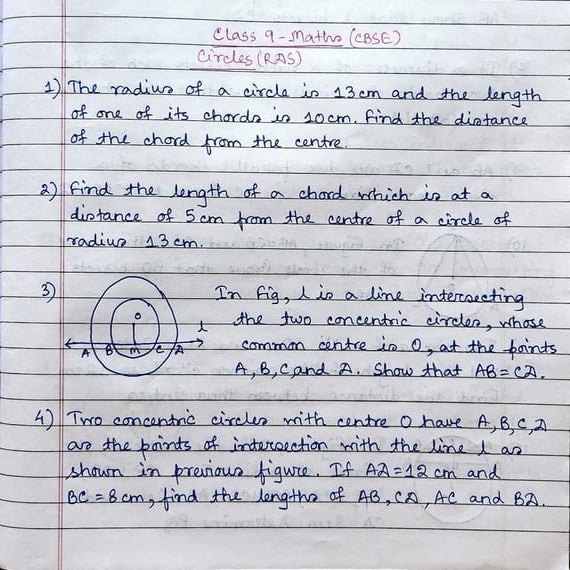 Class 9 - Maths (CBSE)
Circles (RDS)
1) The radius of a circle is 13cm and the length
of one of its chords is 10cm. Find the distance
of the chord from the centre.
2) Find the length of a chord which is at a
distance of 5cm from the centre of a circle of
radius 13cm.
3) In fig, l is a line intersecting
the two concentric circles, whose
common centre is O, at the points
A, B, C and D. Show that AB = CD.
O
l
A B M C D
4) Two concentric circles with centre O have A, B, C, D
as the points of intersection with the line l as
shown in previous figure. If AD = 12 cm and
BC = 8cm, find the lengths of AB, CD, AC and BD.